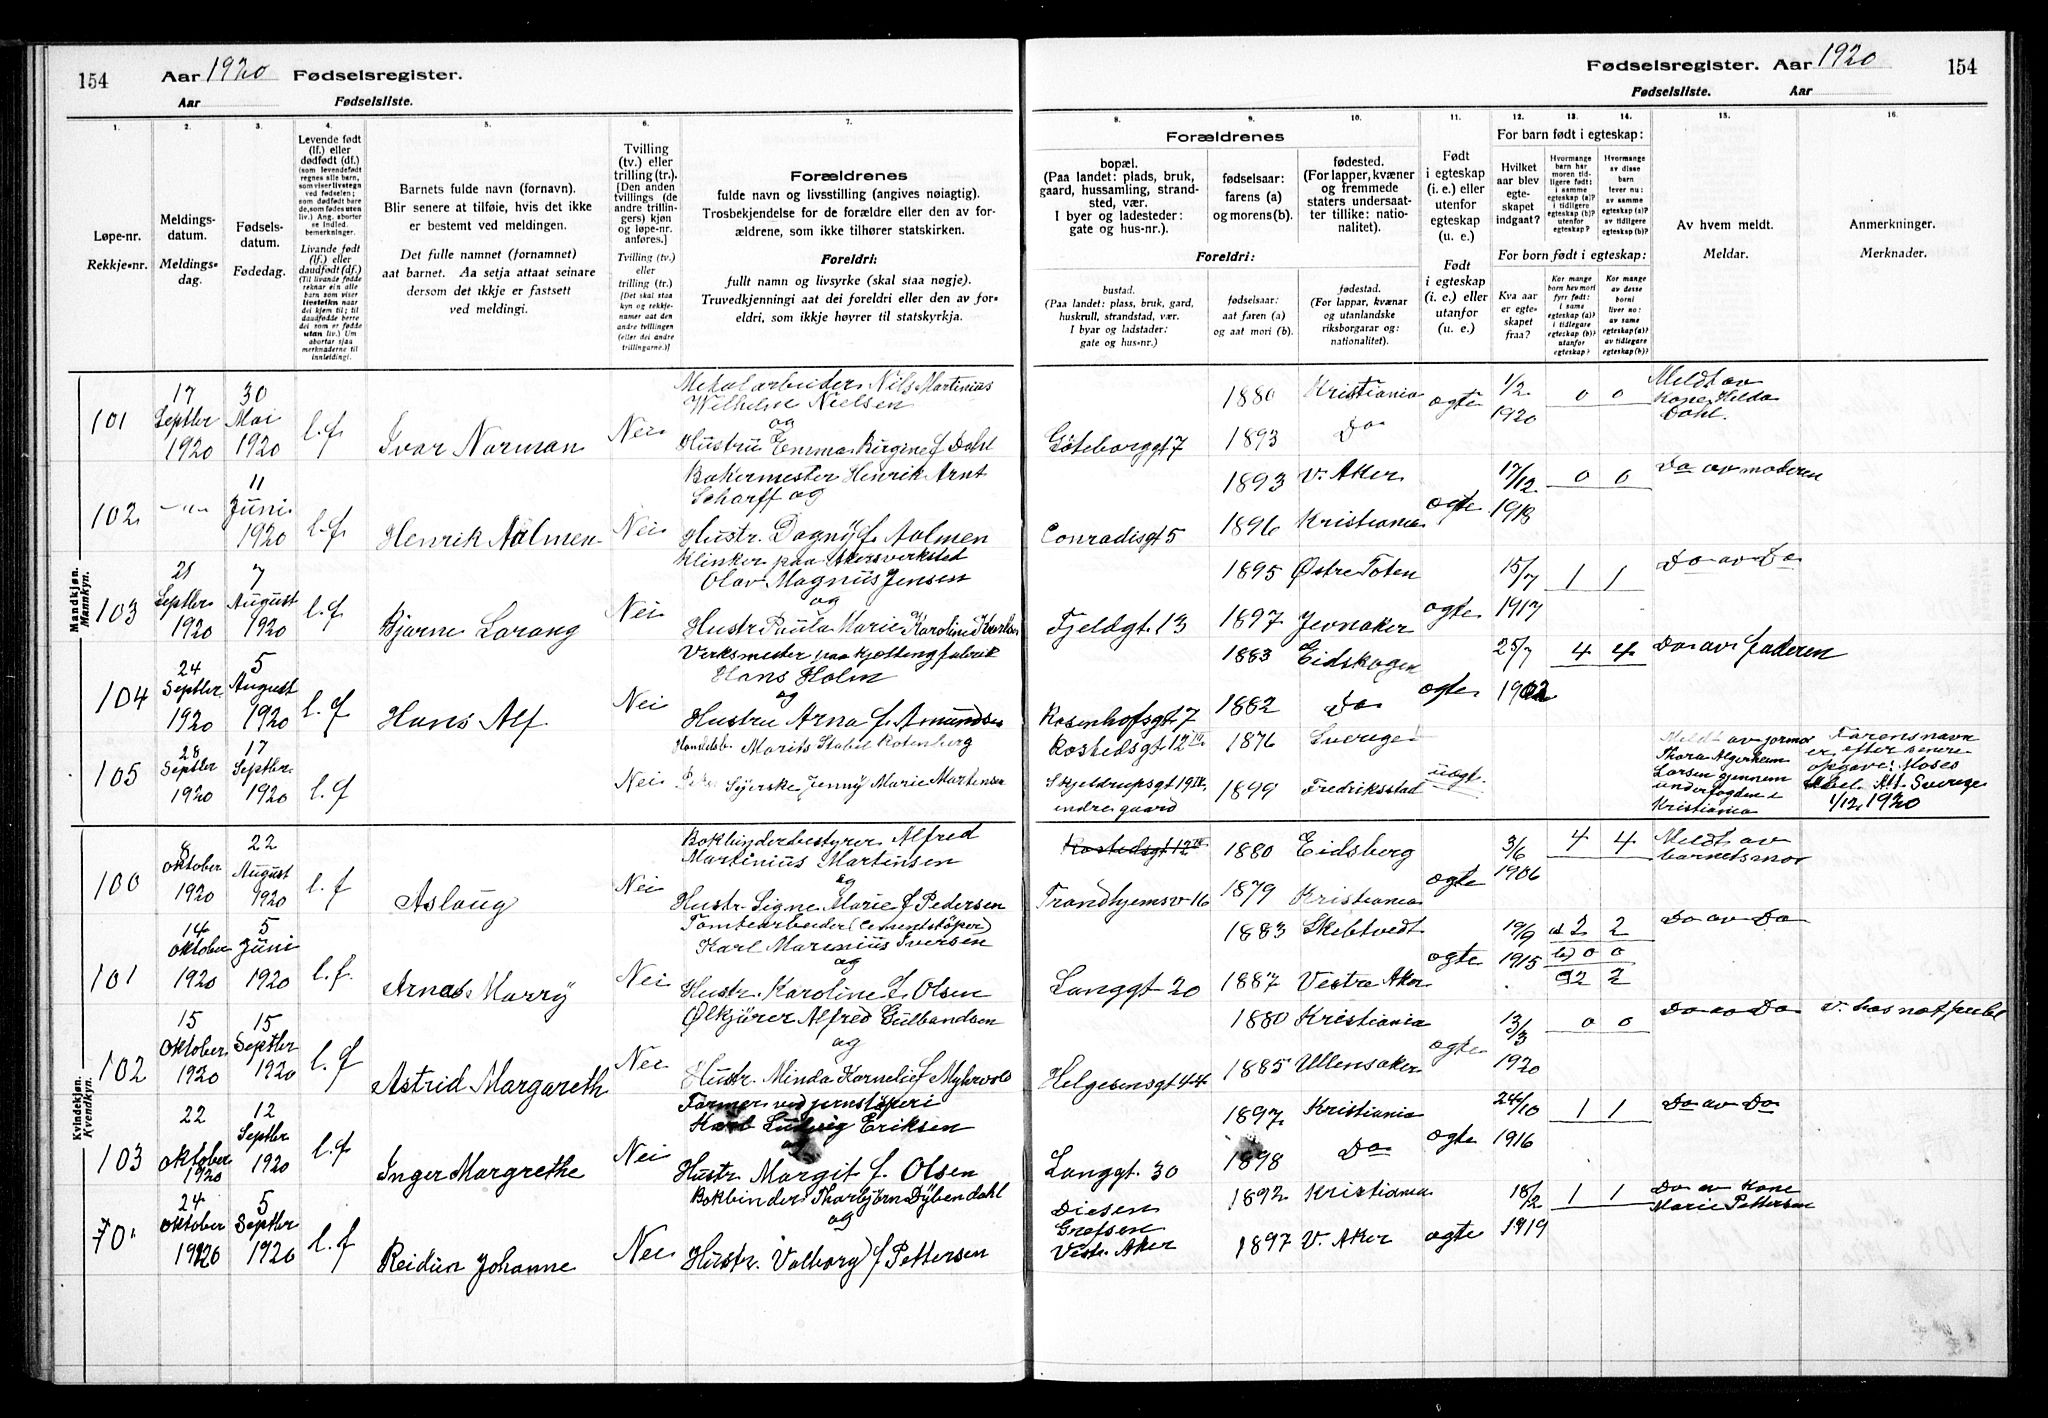 154 Aar 1920 Fødselsregister.
Aar Fødselsliste.
Fødselsregister. Aar 1920 154
Fødselsliste. Aar
1. 2. 3. 4. 5. 6. 7.
Løpe-nr.
Rekkje-nr.
Meldings-
datum.
Meldings-
dag.
Fødsels-
datum.
Fødedag.
Levende født
(lf.) eller
dødfødt (df.)
(som levendefødt
regnes alle barn,
som viser livstegn
ved fødselen;
som dødfødt bare
de, som fødes uten
liv.) Ang. aborter
se indled.
bemerkninger.
Livande født
(lf.) eller
daudfødt (df.)
(Til livande fødde
reknar ein alle
barn som viser
livsteikn naar
dei kjem til; til
daudfødde berre
dei som er fødde
utan liv.) Um
abortar sjaa
merknaderne til
innleidingi.
Barnets fulde navn (fornavn).
Blir senere at tilføie, hvis det ikke
er bestemt ved meldingen.
Det fulle namnet (fornamnet)
aat barnet. Aa setja attaat seinare
dersom det ikkje er fastsett
ved meldingi.
Tvilling
(tv.) eller
trilling (tr.).
[Den anden
tvillings (de
andre trillin-
gers) kjøn
og løpe-nr.
anføres.]
Tvilling (tv.)
eller
trilling (tr.)
[Det skal staa
kyn og rekkje-
numer aat den
andre tvillingen
(eller dei andre
trillingarne.)]
Forældrenes
fulde navn og livsstilling (angives nøiagtig).
Trosbekjendelse for de forældre eller den av for-
ældrene, som ikke tilhører statskirken.
Foreldri:
fullt namn og livsyrke (skal staa nøgje).
Truvedkjenningi aat dei foreldri eller den av for-
eldri, som ikkje høyrer til statskyrkja.
8. 9. 10. 11. 12. 13. 14. 15. 16.
Forældrenes
bopæl.
(Paa landet: plads, bruk,
gaard, hussamling, strand-
sted, vær.
I byer og ladesteder:
gate og hus-nr.).
fødselsaar:
farens (a)
og morens (b).
fødested.
(For lapper, kvæner
og fremmede
staters undersaat-
ter tillike: natio-
nalitet).
Foreldri:
bustad.
(Paa landet: plass, bruk, gard,
huskrull, strandstad, vær.
I byar og ladstader:
gate og hus-nr.)
fødselsaar:
aat faren (a)
og aat mori (b).
fødestad.
(For lappar, kvænar
og utanlandske
riksborgarar og:
nationalitet).
Født
i egteskap
(i. e.) eller
utenfor
egteskap
(u. e.)
Født
i egteskap
(i. e.) eller
utanfor
(u. e.).
For barn født i egteskap:
Hvilket
aar blev
egte-
skapet
indgaat?
Hvormange
barn har
moren tid-
ligere født:
i samme
egteskap (a)?
i tidligere
egteskap (b)?
utenfor
egteskap?
Hvormange
av disse
barn
lever nu:
av samme
egteskap (a)?
av tidligere
egteskap (b)?
For born født i egteskap:
Kva aar
er egte-
skapet
fraa?
Kor mange
born hev mori
fyrr født:
i same
egteskap (a)?
i tidlegare
egteskap (b)?
utanfor
egteskap?
Kor mange
av desse
borni
liver no:
av same
egteskap (a)?
av tidlegare
egteskap (b)?
Av hvem meldt.
Meldar.
Anmerkninger.
Merknader.
Mandkjøn.
Mannkyn.
101 17 Septbr 1920 30 Mai 1920 l.f Ivar Norman Nei
Metalarbeider Nils Martinius
Wilhelm Nielsen
og
Hustru Emma Birgine f Dahl
Göteborggt 7 1880 Kristiania 1893 Do ægte 1/2 1920 0 0
Meldt av
Kone Hilda
Dahl.
102. 11 Juni 1920 l.f Henrik Aalmen Nei
Bakermester Henrik Arnt
Scharff og
Hustr. Dagny f. Aalmen
Conradisgt 5 1893 V. Aker 1896 Kristiania ægte 17/12 1918 0 0 Do av moderen
103 21 Septbr 1920 7 August 1920 l.f Bjarne Lorang Nei
Klinker paa Akersverksted
Olav Magnus Jensen
og
Hustr Paula Marie Karoline Karlsen
Fjeldgt. 13 1895 Østre Toten 1897 Jevnaker ægte 15/7 1917 1 1 Do av Do
104 24 Septbr. 1920 5 August 1920 l.f Hans Alf Nei
Verksmester paa Kjættingfabrik
Hans Holm
og
Hustru Arna f. Amundsen
Rosenhofsgt 7 1883 Eidskogen 1882 Do ægte 25/7 1902 4 4 Do av faderen
105 28 Septbr 1920 17 Septbr. 1920 l.f Nei
Handelsb. Morits Stabel Rotenberg
Syerske Jenny Marie Martensen
Rostedsgt 12 III 1876 Sverige
Skjeldrupsgt 19 IV
indre gaard 1899 Fredriksstad uægt.
Meldt av jormor
Thora Algerheim
Larsen gjennem
underfogden i
Kristiania
Farens navn
er, efter senere
opgave: Moses
1/12. 1920
Kvindekjøn.
Kvendkyn.
100 8 Oktober 1920 22 August 1920 l.f Aslaug Nei
Bokbinderbestyrer Alfred
Martinius Martinsen
og
Hustr. Signe Marie f Pedersen
Rostedsgt 12 III
Trondhjemsv 16 1880 Eidsberg 1879 Kristiania ægte 3/6 1906 4 4
Meldt av
barnets mor
101 14 Oktober 1920 5 Juni 1920 l.f. Arna Harry Nei
Tomtearbeider (Cementstöper)
Karl Marenius Iversen
og
Hustr. Karoline f. Olsen
Langgt 20 1883 Skibtvedt 1887 Vestre Aker ægte 19/9 1915 a 2 2
b) 0 0
2 2 Do av Do
102 15 Oktober 1920 15 Septbr 1920 l.f Astrid Margareth Nei
Ølkjører Alfred Gulbandsen
og
Hustr. Minda Kornelie f Myhrvold
Helgesensgt 44 1880 Kristiania 1885 Ullensaker ægte 13/3 1920 0 0 Do av Do
103 22 Oktober 1920 12 Septbr 1920 l.f Inger Margrethe Nei
Former ved jernstöperi
Karl Ludvig Eriksen
og
Hustr. Margit f. Olsen
Langgt. 30 1897 Kristiania 1898 Do ægte 24/10 1916 1 1 Do av Do
24 Oktober 1920 5 Septbr 1920 l.f Reidun Johanne Nei
Bokbinder Thorbjørn Dybendahl
og
Hustr. Valborg f Pettersen
Disen
Grefsen
Vestr. Aker 1892 Kristiania 1897 V. Aker ægte 18/2 1919 1 1
Do av Kone
Marie Pettersen